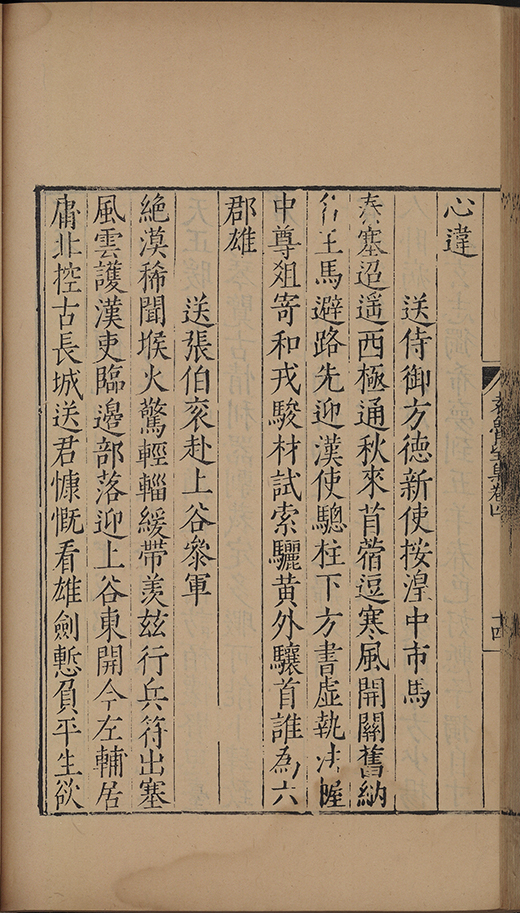 卷四
十四
心違
送侍御方德新使按湟中市馬
秦塞迢遥西極通秋來苜蓿逗寒風開關舊納
名王馬避路先迎漢使驄柱下方書虛執法幄
中尊俎寄和戎駿材試索驪黃外驤首誰為六
郡雄
送張伯衮赴上谷叅軍
絶漠稀聞堠火驚輕輜緩帶羨兹行兵符出塞
風雲護漢吏臨邊部落迎上谷東開今左輔居
庸北控古長城送君慷慨看雄劍慙負平生欲